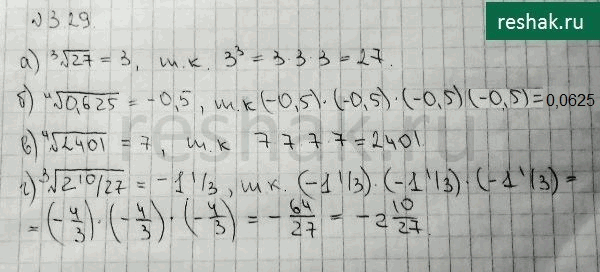 reshak.ru
№329.
а) ³√27 = 3, т.к. 3³ = 3·3·3 = 27.
б) ⁴√0,625 = -0,5, т.к (-0,5)·(-0,5)·(-0,5)(-0,5)=0,0625
в) ⁴√2401 = 7, т.к 7·7·7·7=2401
г) ³√2 10/27 = -1 1/3, т.к. (-1 1/3)·(-1 1/3)·(-1 1/3) =
= (-4/3)·(-4/3)·(-4/3) = -64/27 = -2 10/27.
reshak.ru